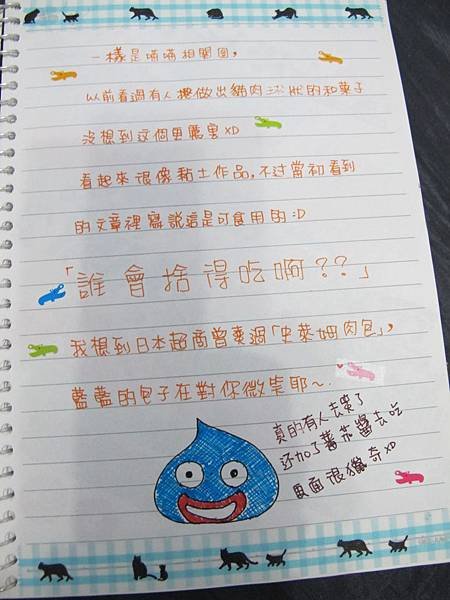 一樣是喃喃相關圖，
以前看過有人捏做出貓肉球狀的和菓子
沒想到這個更厲害XD
看起來很像黏土作品，不过當初看到
的文章裡寫說這是可食用的:D
「誰會捨得吃啊??」
我想到日本超商曾賣過「史萊姆肉包」，
藍藍的包子在對你微笑耶～.
真的有人去買了
还加了蕃茄醬去吃
画面很獵奇XD